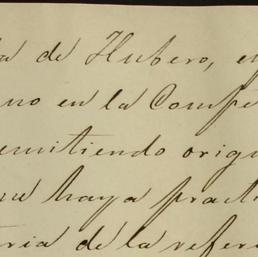 a de Hubero, e
no en la Compe
emitiendo origi
haya practi
ria de la refer